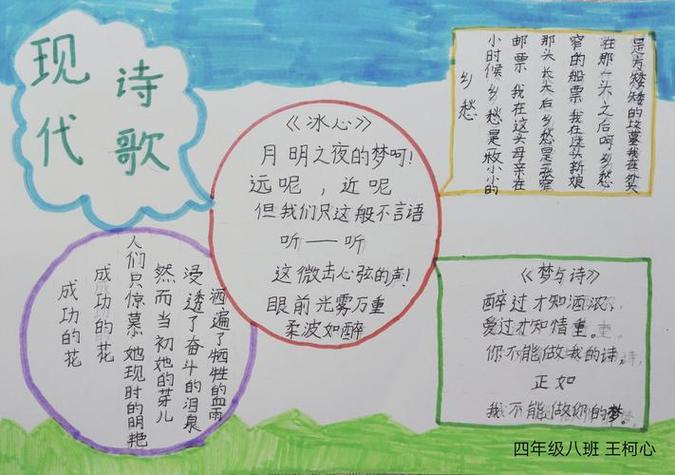 现代
诗歌
《冰心》
月明之夜的梦呵!
远呢,近呢
但我们只这般不言语
听——听
这微击心弦的声!
眼前光雾万重
柔波如醉
乡愁
小时候乡愁是一枚小小的
邮票 我在这头母亲在
那头 长大后乡愁是张窄
窄的船票 我在这头新娘
在那一头之后呵乡愁
是方矮矮的坟墓我在外头
成功的花
成功的花
人们只惊慕她现时的明艳
然而当初她的芽儿
浸透了奋斗的泪泉
洒遍了牺牲的血雨
《梦与诗》
醉过才知酒浓,
爱过才知情重。
你不能做我的诗,
正如
我不能做你的梦。
四年级八班 王柯心